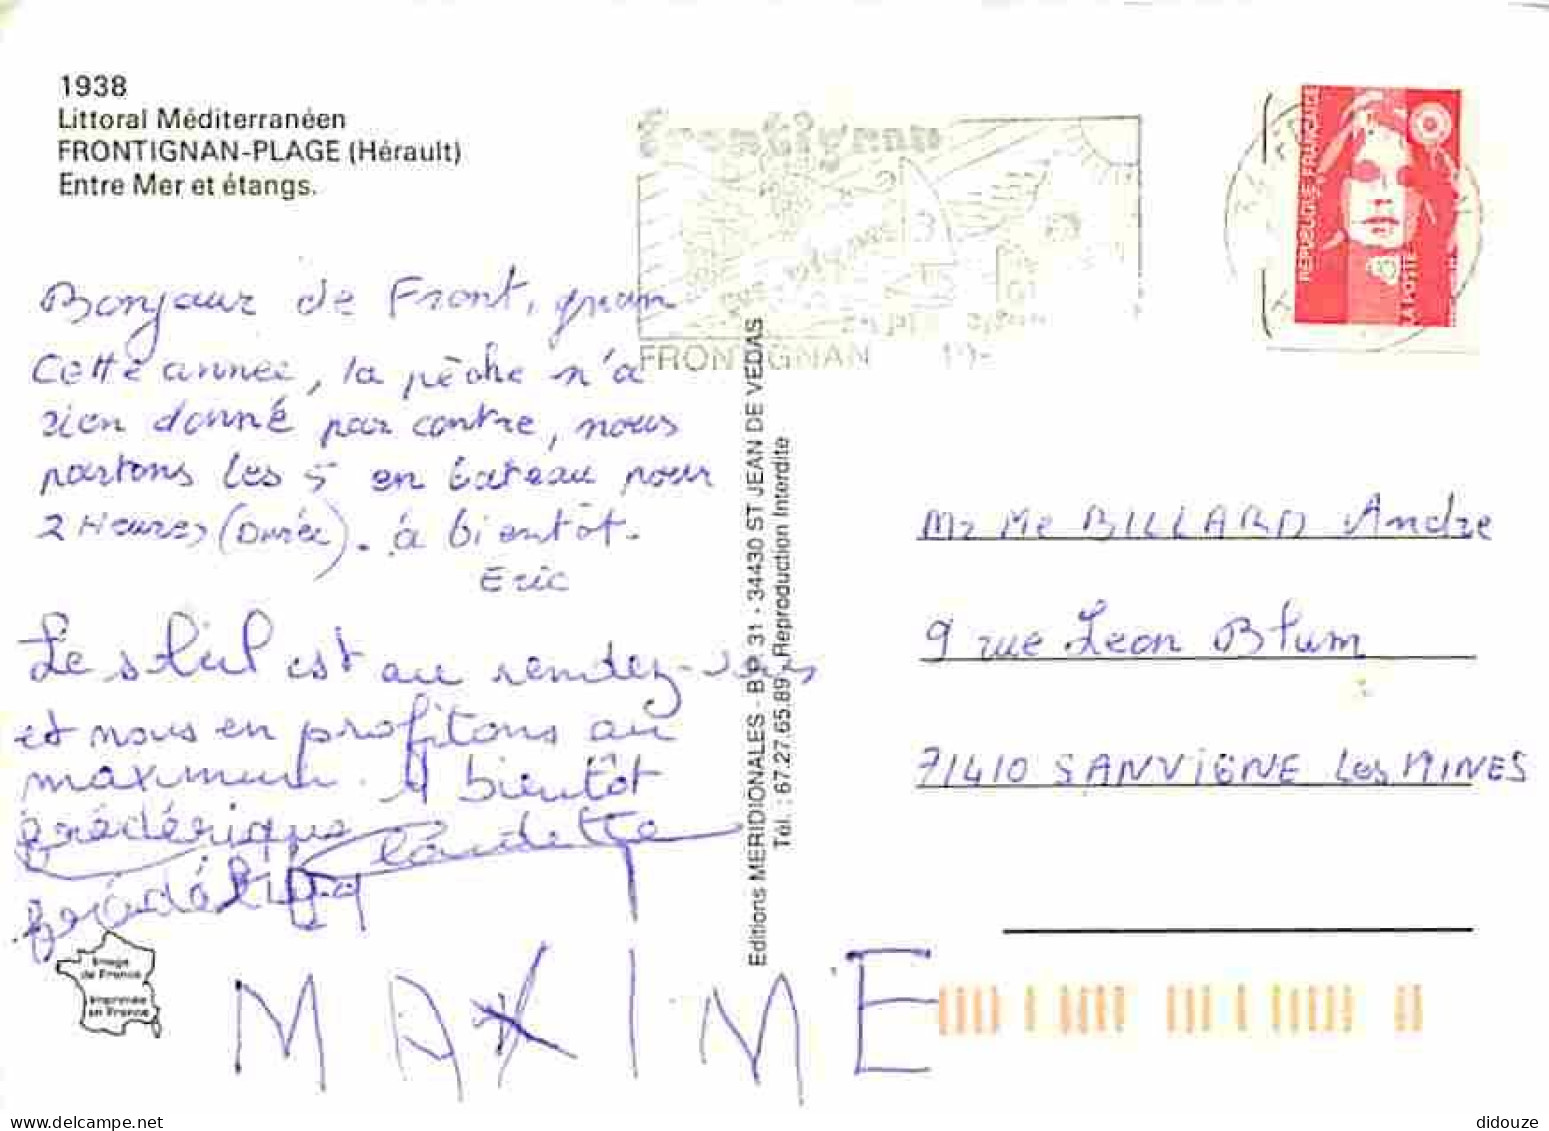 1938
Littoral Méditerranéen
FRONTIGNAN-PLAGE (Hérault)
Entre Mer et étangs.
Frontignan
FRONTIGNAN
REPUBLIQUE FRANÇAISE
LA POSTE
Bonjour de Frontignan
Cette année, la pêche n'a
rien donné par contre, nous
partons les 5 en bateau pour
2 Heures (Durée). à bientôt.
Eric
Le soleil est au rendez-vous
et nous en profitons au
maximum. A bientôt
frédérique Claudette
MAXIME
Editions MERIDIONALES - B.P. 31 - 34430 ST JEAN DE VEDAS
Tél. : 67.27.65.89 - Reproduction Interdite
Mr Me BILLARD Andre
9 rue Leon Blum
71410 SANVIGNE Les MINES
Image
de France
Imprimée
en France
didouze
delcampe.net